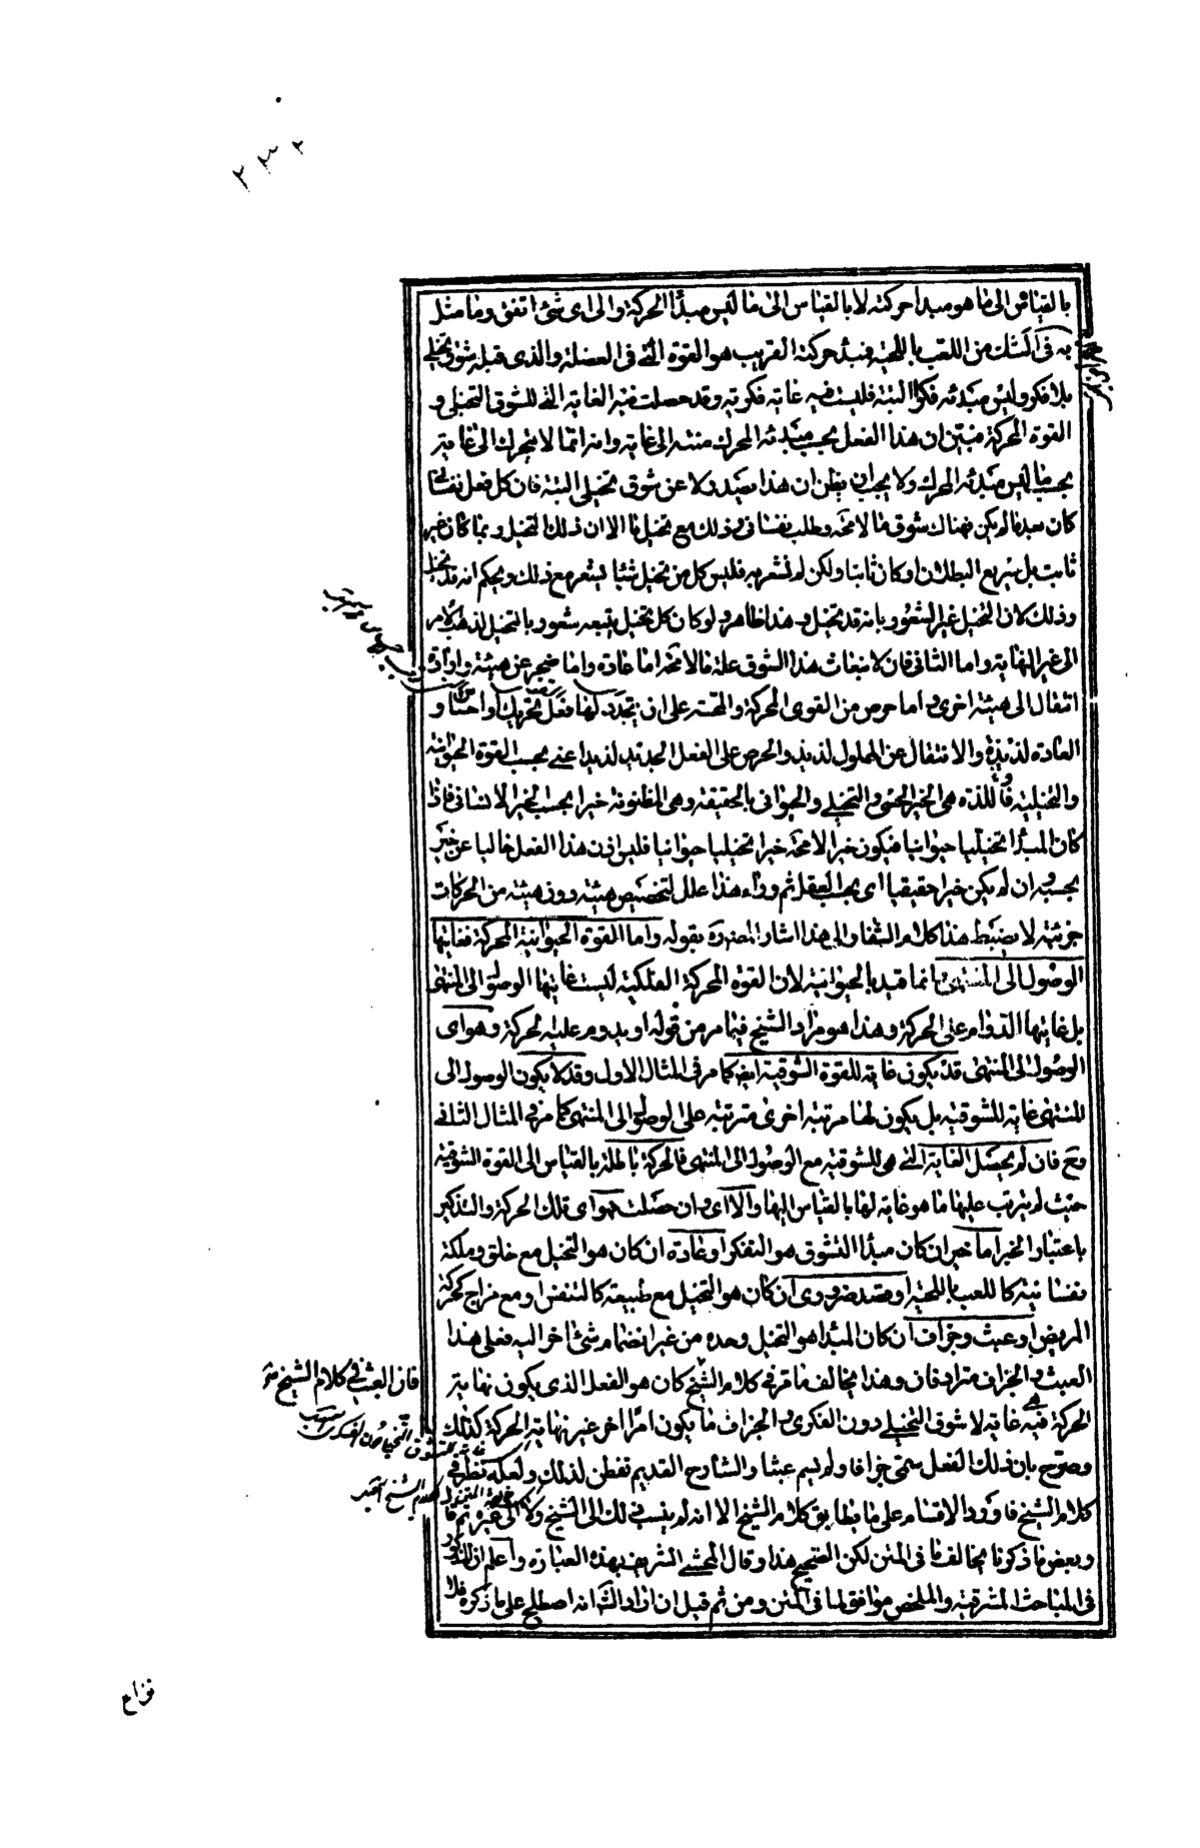 ٢٣٢
بالقياس الى ما هو مبدا حركته لا بالقياس الى ما ليس مبدأ الحركة والى اى شئ اتفق وما مثل
به فى الشك من اللعب باللحية فمبدء حركته القريب هو القوة التى فى العضلة والذى قبله شوق تخيلى
بلا فكر وليس مبدئه فكرا البتة فليست فيه غاية فكرية وقد حصلت فيه الغاية التى للشوق التخيلى و
القوة المحركة فبين ان هذا الفعل بحسب مبدئه المحرك منته الى غاية وانه انما لا يتحرك الى غاية
بحسب ما ليس مبدئه المحرك ولا يجب ان يظن ان هذا يصدر لا عن شوق تخيلى البتة فان كل فعل نفسانى
كان بعد ما لم يكن فهناك شوق ما لا محة وطلب نفسانى وذلك مع تخيل ما الا ان ذلك التخيل ربما كان غير
ثابت بل سريع البطلان او كان ثابتا ولكن لم يشعر به فليس كل من تخيل شيئا يشعر مع ذلك ويحكم انه قد تخيل
وذلك لان التخيل غير الشعور بانه قد تخيل وهذا ظاهر ولو كان كل تخيل يتبعه شعور بالتخيل لذهب الامر
الى غير النهاية واما الثانى فان لانبعاث هذا الشوق علة ما لا محة اما عادة واما ضجر عن هيئة وارادة
انتقال الى هيئة اخرى واما حرص من القوى المحركة والمحسة على ان يتجدد لها فعل تحريك او احساس و
العادة لذيذة والانتقال عن المملول لذيذ والحرص على الفعل الجديد لذيذ اعنى بحسب القوة الحيوانية
والتخيلية واللذة هى الخير الحسى والتخيلى والحيوانى بالحقيقة وهى المظنونة خيرا بحسب الخير الانسانى فاذا
كان المبدأ تخيليا حيوانيا فيكون خيره لا محة خيرا تخيليا حيوانيا فليس اذن هذا الفعل خاليا عن خير
بحسبه وان لم يكن خيرا حقيقيا اى بحسب العقل ثم وراء هذا علل لتخصيص هيئة دون هيئة من الحركات
جزئية لا يضبط هذا كلام الشفا والى هذا اشار المصنف بقوله واما القوة الحيوانية المحركة فغايتها
الوصول الى المنتهى وانما قيد بالحيوانية لان القوة المحركة الفلكية ليست غايتها الوصول الى المنتهى
بل غايتها الدوام على الحركة وهذا هو مراد الشيخ فيما مر من قوله او يدوم عليه الحركة وهو اى
الوصول الى المنتهى قد يكون غاية للقوة الشوقية ايضا كما مر فى المثال الاول وقد لا يكون الوصول الى
المنتهى غاية للشوقية بل يكون لها مرتبة اخرى مترتبة على الوصول الى المنتهى كما مر فى المثال الثانى
وح فان لم يحصل الغاية التى هى للشوقية مع الوصول الى المنتهى فالحركة باطلة بالقياس الى القوة الشوقية
حيث لم يترتب عليها ما هو غاية لها بالقياس اليها والا اى وان حصلت فهو اى تلك الحركة والتذكير
باعتبار الخبر اما خير ان كان مبدأ التشوق هو التفكر او عادة ان كان هو التخيل مع خلق وملكة
نفسانية كاللعب باللحية او قصد ضرورى ان كان هو التخيل مع طبيعة كالتنفس او مع مزاج كحركة
المريض او عبث وجزاف ان كان المبدأ هو التخيل وحده من غير انضمام شئ اخر اليه فعلى هذا
العبث والجزاف مترادفان وهذا يخالف ما مر فى كلام الشيخ كان هو الفعل الذى يكون نهاية
فان العبث فى كلام الشيخ
الحركة فيه هى غاية لا شوق التخيلى دون الفكرى والجزاف ما يكون امرا اخر غير نهاية الحركة كذلك
وصرح بان ذلك الفعل سمى جزافا ولم يسم عبثا والشارح القديم تفطن لذلك ولعله نظر فى
كلام الشيخ فاورد الاقسام على ما يطابق كلام الشيخ الا انه لم ينسب ذلك الى الشيخ ولا الى غيره ثم قال
وبعض ما ذكرنا يخالف ما فى المتن لكن الصحيح هذا وقال المحشى الشريف بهذه العبارة واعلم ان المذكور
فى المباحث المشرقية والملخص موافق لما فى المتن ومن ثم قيل ان اراد ذلك انه اصطلح على ما ذكره فلا
نزاع